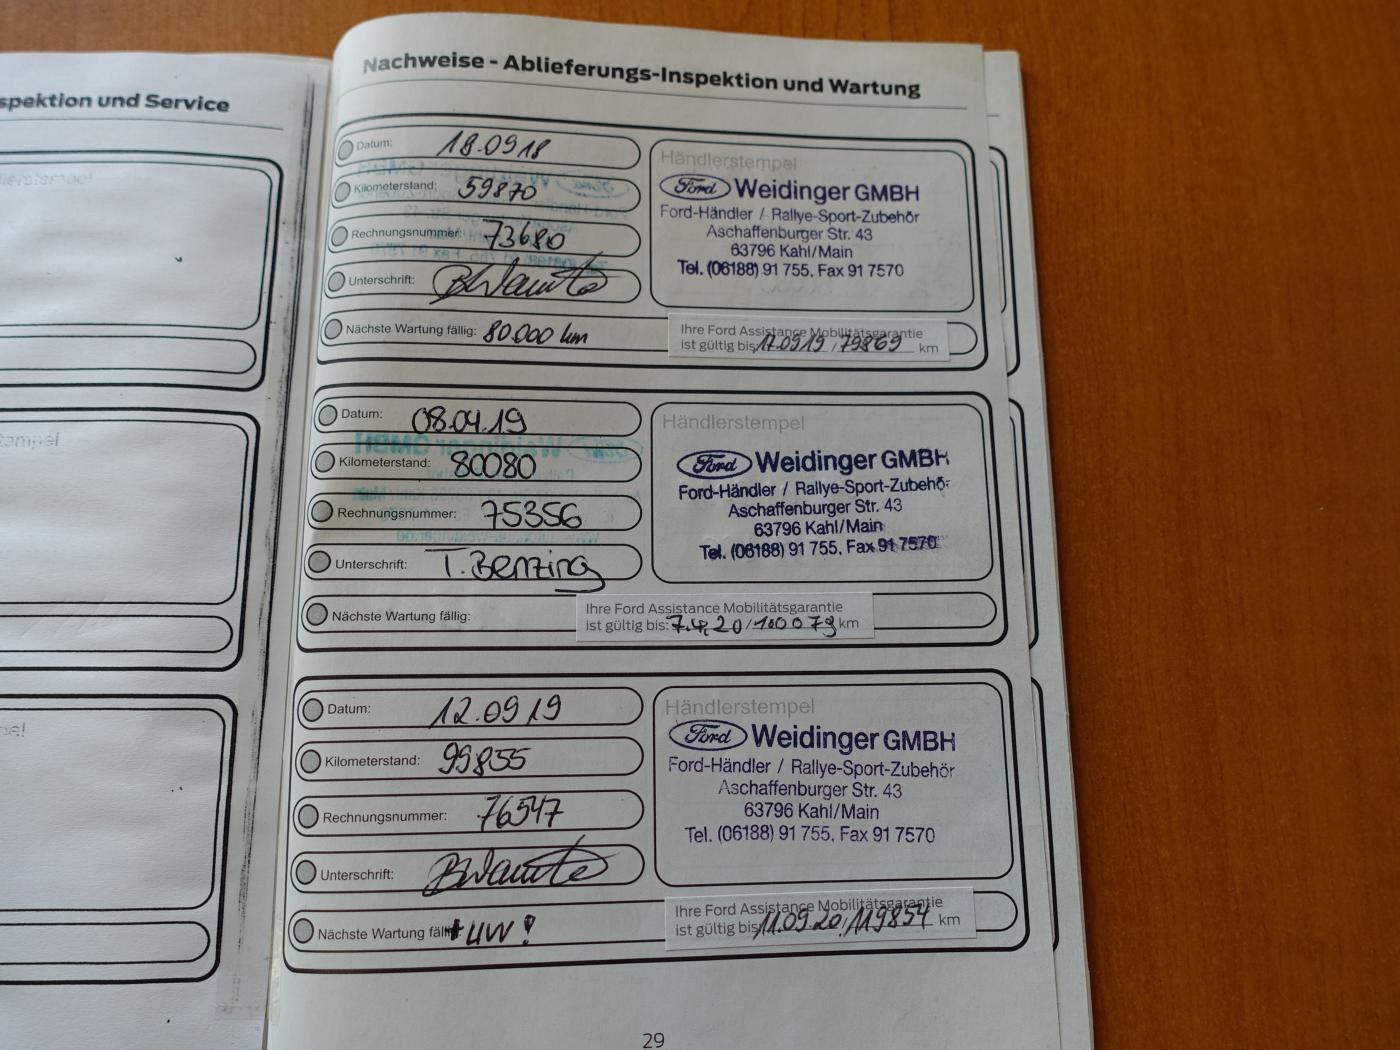 spektion und Service
Nachweise - Ablieferungs-Inspektion und Wartung
Datum: 18.09 18
Kilometerstand: 59870
Rechnungsnummer: 73680
Unterschrift:
Nächste Wartung fällig: 80.000 km
Händlerstempel
Ford Weidinger GMBH
Ford-Händler / Rallye-Sport-Zubehör
Aschaffenburger Str. 43
63796 Kahl/Main
Tel. (06188) 91 755, Fax 91 7570
Ihre Ford Assistance Mobilitätsgarantie
ist gültig bis 17.09 19 / 79869 km
Datum: 08.04.19
Kilometerstand: 80080
Rechnungsnummer: 75356
Unterschrift: T. Benzing
Nächste Wartung fällig:
Händlerstempel
Ford Weidinger GMBH
Ford-Händler / Rallye-Sport-Zubehör
Aschaffenburger Str. 43
63796 Kahl/Main
Tel. (06188) 91 755, Fax 91 7570
Ihre Ford Assistance Mobilitätsgarantie
ist gültig bis: 7.4.20 / 100079 km
Datum: 12.09 19
Kilometerstand: 99855
Rechnungsnummer: 76547
Unterschrift:
Nächste Wartung fäll + UW !
Händlerstempel
Ford Weidinger GMBH
Ford-Händler / Rallye-Sport-Zubehör
Aschaffenburger Str. 43
63796 Kahl/Main
Tel. (06188) 91 755, Fax 91 7570
Ihre Ford Assistance Mobilitätsgarantie
ist gültig bis 11.09.20 / 119854 km
29